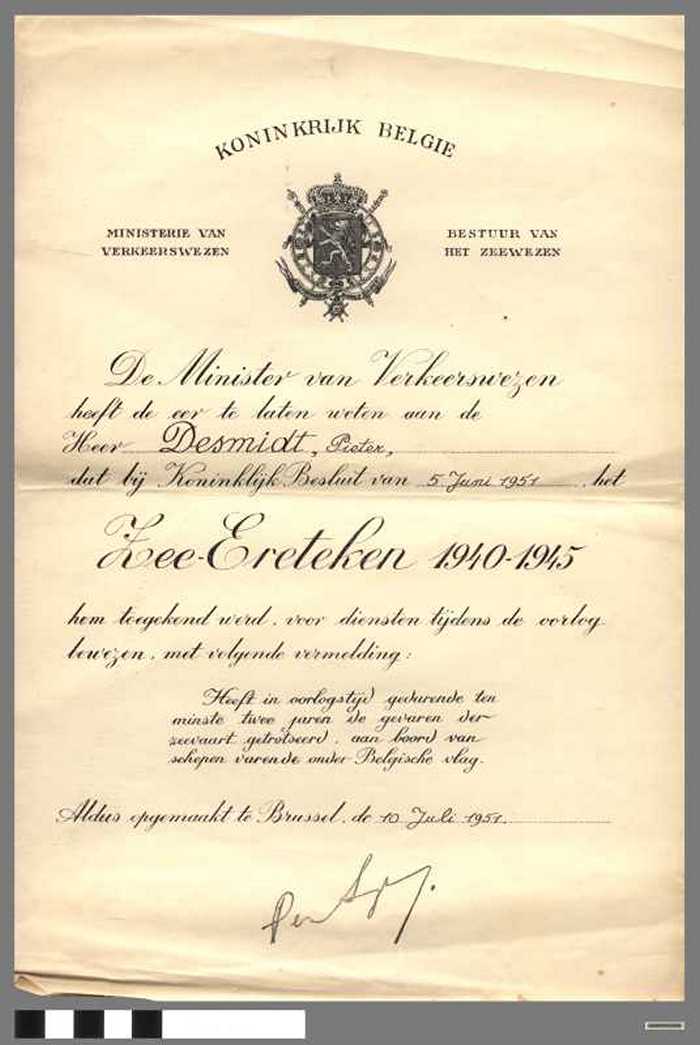 KONINKRIJK BELGIE
MINISTERIE VAN
VERKEERSWEZEN
BESTUUR VAN
HET ZEEWEZEN
De Minister van Verkeerswezen
heeft de eer te laten weten aan de
Heer Desmidt, Pieter,
dat bij Koninklijk Besluit van 5 Juni 1951 het
Zee-Ereteken 1940-1945
hem toegekend werd, voor diensten tijdens de oorlog
bewezen, met volgende vermelding:
Heeft in oorlogstijd gedurende ten
minste twee jaren de gevaren der
zeevaart getrotseerd, aan boord van
schepen varende onder Belgische vlag.
Aldus opgemaakt te Brussel, de 10 Juli 1951.